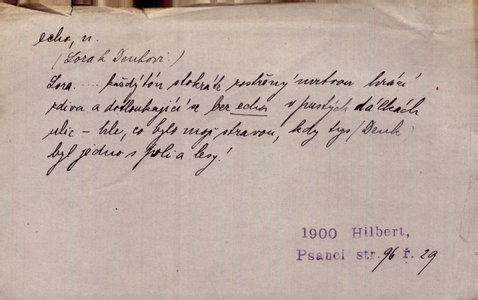 echo, n.
(Lora k Denkovi:)
Lora .... každý tón stokráte roztřený mrtvou hrází
zdiva a dotloukající se bez echa v pustých dálkách
ulic – hle, co bylo mojí stravou, kdy tys (Denk)
byl jedno s poli a lesy!
1900 Hilbert,
Psanci str. 96 ř. 29